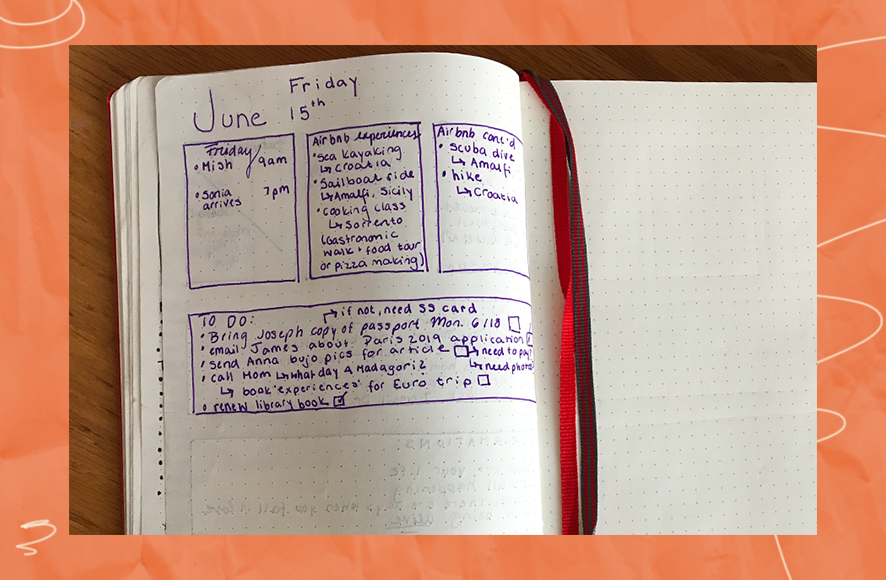 June Friday 15th
Friday
• Mish 9am
• Sonia arrives 7pm
Airbnb experiences
• sea kayaking
↳ Croatia
• Sailboat ride
↳ Amalfi, Sicily
• cooking class
↳ Sorrento
(Gastronomic
walk + food tour
or pizza making)
Airbnb cont'd
• scuba dive
↳ Amalfi
• hike
↳ Croatia
TO DO: if not, need SS card
• Bring Joseph copy of passport Mon. 6/18
• email James about Paris 2019 application
• send Anna bujo pics for article ↳ need to pay?
• call Mom ↳ what day 4 Madagori? ↳ need photo
↳ book 'experiences' for Euro trip
• renew library book